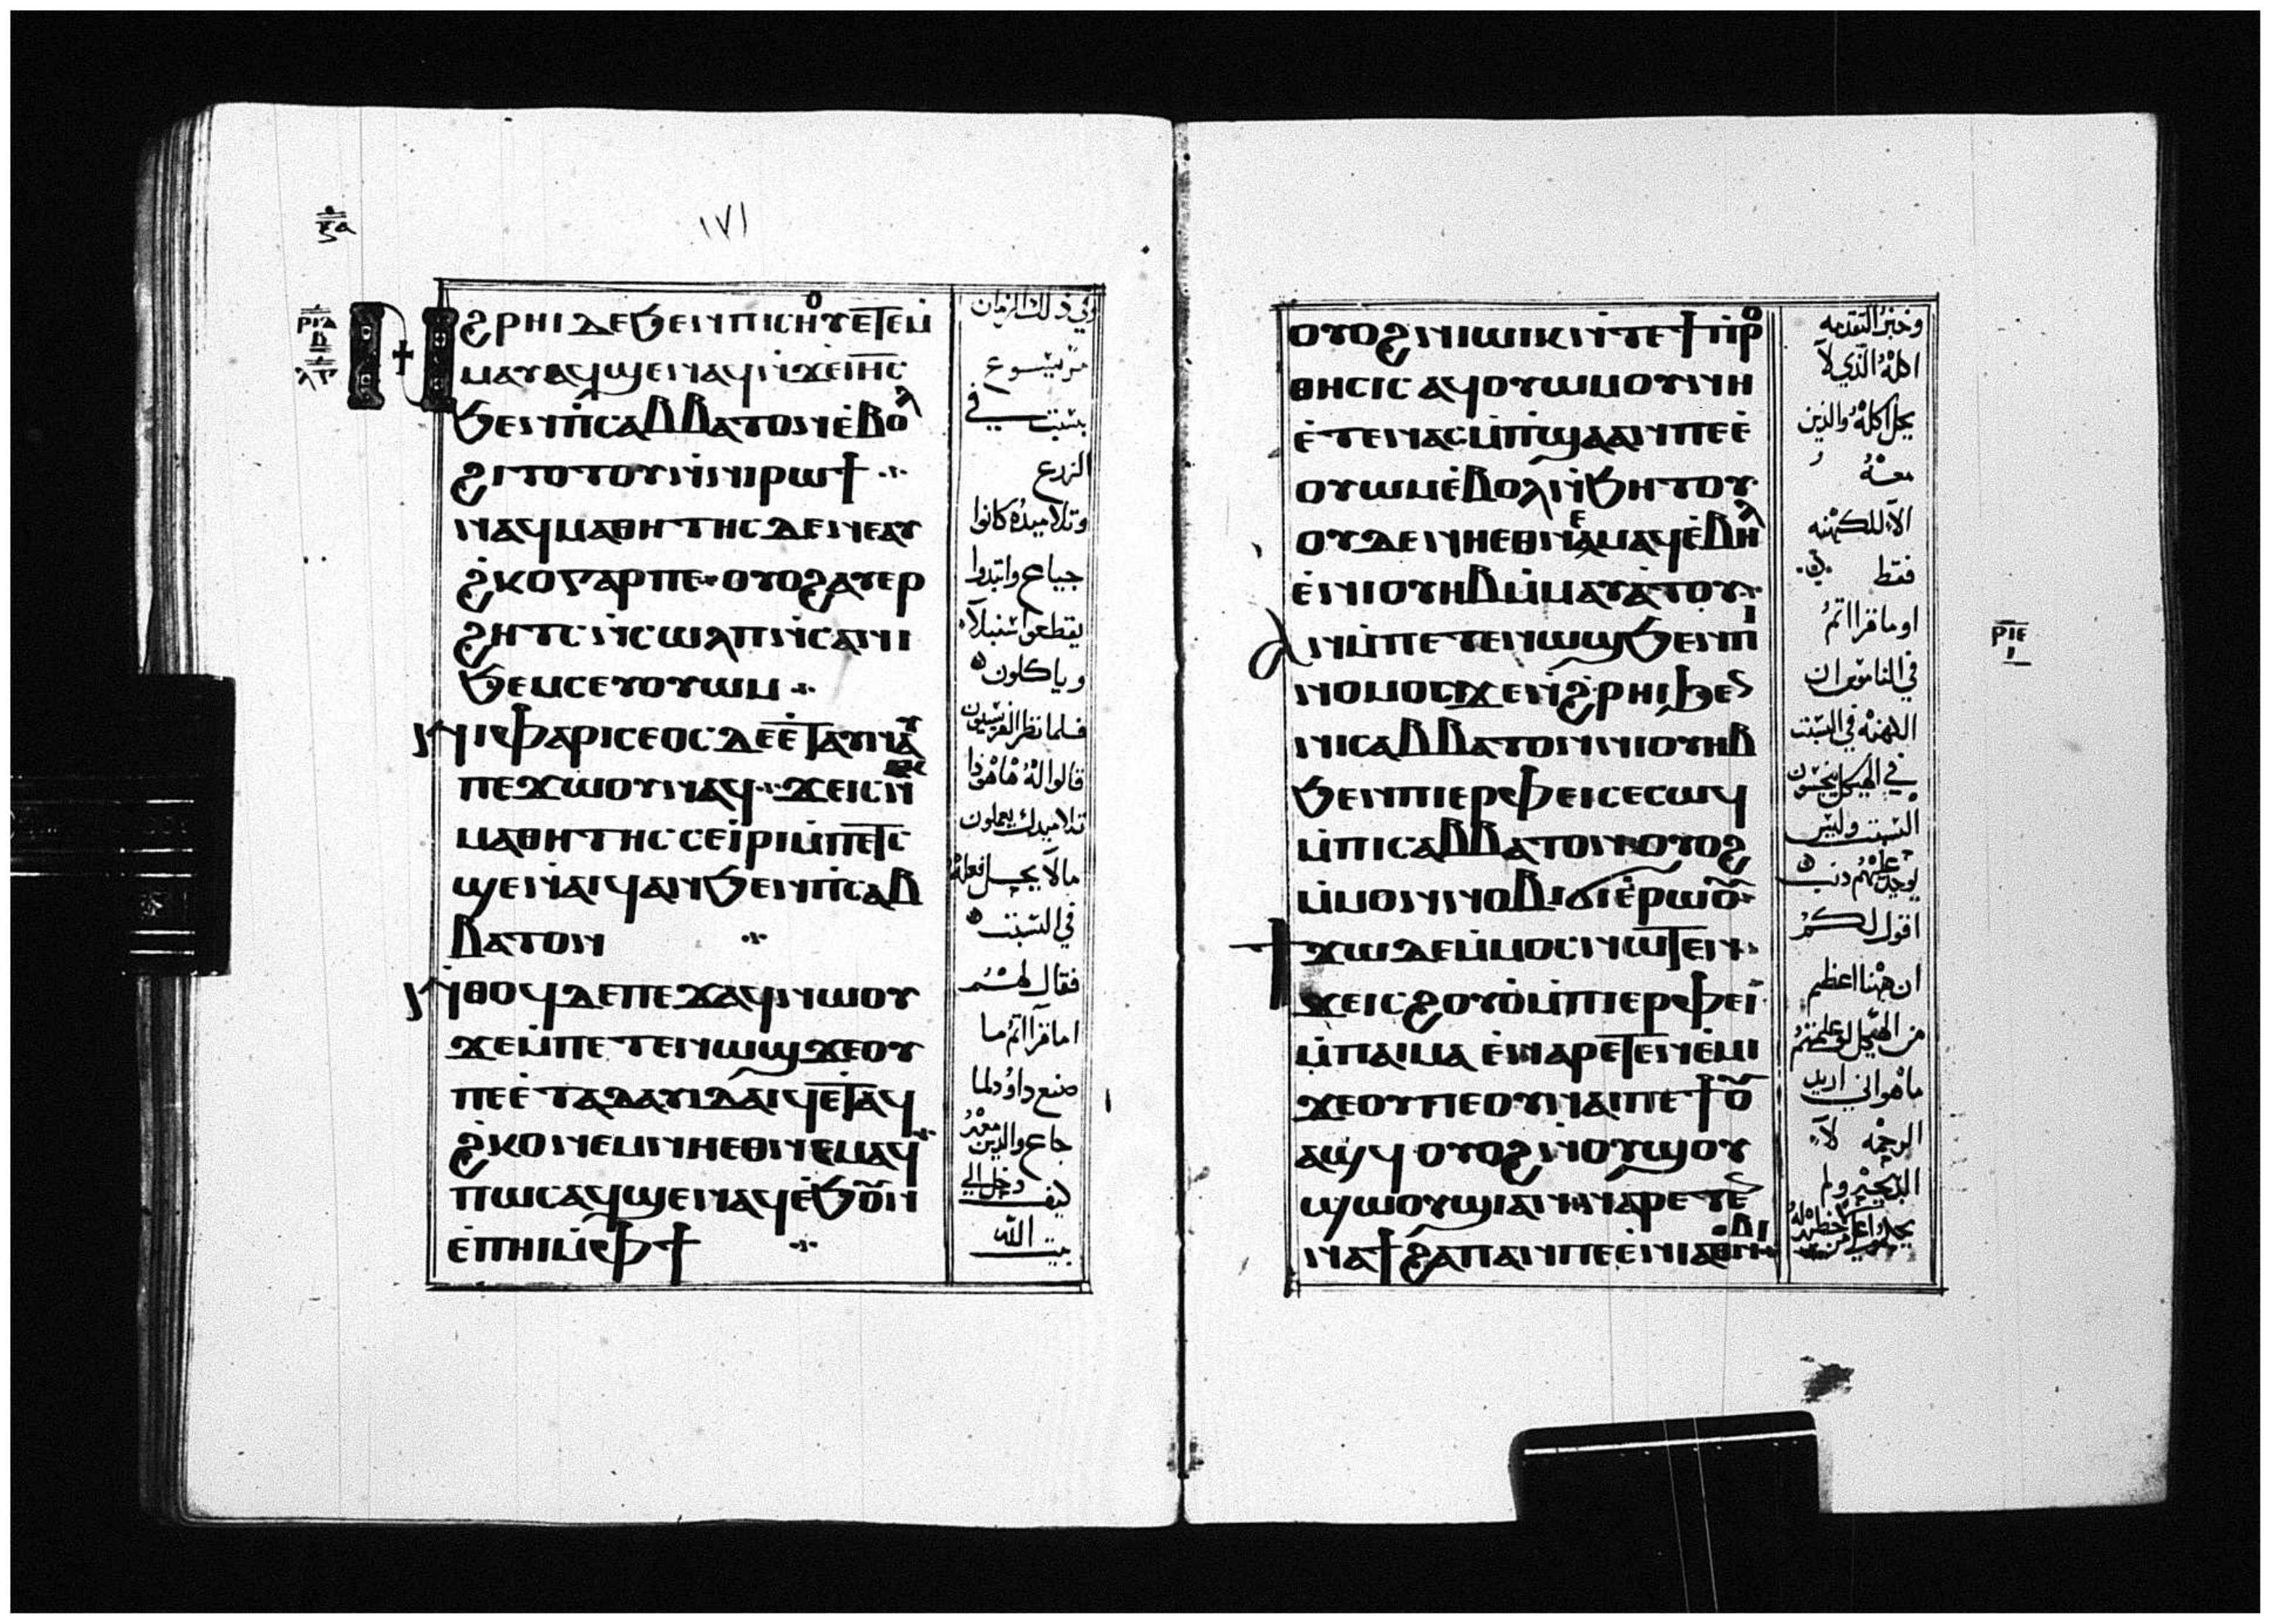 ١٧١
ⲣⲓⲇ
ⲃ
Ⲛϩⲣⲏⲓ ⲇⲉ ϧⲉⲛ ⲡⲓⲥⲏⲟⲩ ⲉⲧⲉⲙ
ⲙⲁⲩ ⲁϥϣⲉⲛⲁϥ ⲛ̇ϫⲉ ⲓⲏ̅ⲥ̅
ϧⲉⲛ ⲡⲓⲥⲁⲃⲃⲁⲧⲟⲛ ⲉ̇ⲃⲟⲗ
ϩⲓⲧⲟⲧⲟⲩ ⲛ̇ⲛⲓⲣⲱϯ
ⲛⲁϥⲙⲁⲑⲏⲧⲏⲥ ⲇⲉ ⲛⲉⲁⲩ
ϩ̇ⲕⲟ ⲅⲁⲣ ⲡⲉ ⲟⲩⲟϩ ⲁⲩⲉⲣ
ϩⲏⲧⲥ ⲛ̇ⲥⲱⲗⲡ ⲛ̇ⲥⲁⲛⲓ
ϧⲉⲙⲥ ⲉⲩⲟⲩⲱⲙ
Ⲛⲓⲫⲁⲣⲓⲥⲉⲟⲥ ⲇⲉ ⲉ̇ⲧⲁⲩⲛⲁⲩ
ⲡⲉϫⲱⲟⲩ ⲛⲁϥ ϫⲉ ⲓⲥ ⲛⲉⲕ
ⲙⲁⲑⲏⲧⲏⲥ ⲥⲉⲓ̇ⲣⲓ ⲙ̇ⲡⲉⲧⲥ
ϣⲉ ⲛ̇ⲁⲓϥ ⲁⲛ ϧⲉⲛ ⲡⲓⲥⲁⲃ
ⲃⲁⲧⲟⲛ
Ⲛ̇ⲑⲟϥ ⲇⲉ ⲡⲉϫⲁϥ ⲛⲱⲟⲩ
ϫⲉ ⲙ̇ⲡⲉⲧⲉⲛⲱϣ ϫⲉ ⲟⲩ
ⲡⲉ ⲉ̇ⲧⲁ ⲇⲁⲩⲓⲇ ⲁⲓϥ ⲉ̇ⲧⲁϥ
ϩ̇ⲕⲟ ⲛⲉⲙ ⲛⲏⲉⲑⲛⲉⲙⲁϥ
ⲡⲱⲥ ⲁϥϣⲉⲛⲁϥ ⲉ̇ϧⲟⲩⲛ
ⲉ̇ⲡⲏⲓ ⲙ̇ⲫϯ
وفي ذلك الزمان
مر يسوع
في السبت
الزرع
وتلاميذه كانوا
جياع وابتدوا
يقطعوا سنبلاً
وياكلون
فلما نظر الفريسيون
قالوا له هاهوذا
تلاميدك يعملون
ما لا يحل فعله
في السبت
فقال لهم
اما قراتم ما
صنع داود لما
جاع والذين معه
كيف دخل الي
بيت الله
ⲟⲩⲟϩ ⲛⲓⲱⲓⲕ ⲛ̇ⲧⲉ ϯⲡⲣⲟ
ⲑⲏⲥⲓⲥ ⲁϥⲟⲩⲱⲙ ⲟⲩⲛ ⲛⲏ
ⲉ̇ⲧⲉ ⲛⲁⲥⲙ̇ⲡϣⲁ ⲁⲛ ⲡⲉ ⲉ̇
ⲟⲩⲱⲙ ⲉ̇ⲃⲟⲗ ⲛ̇ϧⲏⲧⲟⲩ
ⲟⲩⲇⲉ ⲛⲏⲉⲑⲛⲉⲙⲁϥ ⲉ̇ⲃⲏⲗ
ⲉ̇ⲛⲓⲟⲩⲏⲃ ⲙ̇ⲙⲁⲩⲁ̇ⲧⲟⲩ
ⲁⲛ ⲙ̇ⲡⲉⲧⲉⲛⲱϣ ϧⲉⲛ ⲡⲓ
ⲛⲟⲙⲟⲥ ϫⲉ ⲛ̇ϩⲣⲏⲓ ϧⲉⲛ
ⲛⲓⲥⲁⲃⲃⲁⲧⲟⲛ ⲛⲓⲟⲩⲏⲃ
ϧⲉⲛ ⲡⲓⲉⲣⲫⲉⲓ ⲥⲉⲥⲱϥ
ⲙ̇ⲡⲓⲥⲁⲃⲃⲁⲧⲟⲛ ⲟⲩⲟϩ
ⲙ̇ⲙⲟⲛ ⲛⲟⲃⲓ ϭⲓ ⲉ̇ⲣⲱⲟⲩ
ϯϫⲱ ⲇⲉ ⲙ̇ⲙⲟⲥ ⲛⲱⲧⲉⲛ
ϫⲉ ⲓⲥ ϩⲟⲩⲟ̇ ⲙ̇ⲡⲓⲉⲣⲫⲉⲓ
ⲙ̇ⲡⲁⲓⲙⲁ ⲉⲛⲁⲣⲉⲧⲉⲛⲉ̇ⲙⲓ
ϫⲉ ⲟⲩ ⲡⲉ ⲟⲩⲛⲁⲓ ⲡⲉϯⲟⲩ
ⲁϣϥ ⲟⲩⲟϩ ⲛ̇ⲟⲩϣⲟⲩ
ϣⲱⲟⲩϣⲓ ⲁⲛ ⲛⲁⲣⲉⲧⲉⲛ
ⲛⲁϯϩⲁⲡ ⲁⲛ ⲡⲉ ⲉ̇ⲛⲓⲁⲑⲛⲟⲃⲓ
وخبز التقدمه
اكله الذي لا
يحل اكله والذين
معه
الا للكهنه
فقط
او ما قراتم
في الناموس ان
الكهنه في السبت
في الهيكل ينجسون
السبت وليس
يوجد عليهم ذنب
اقول لكم
ان ههنا اعظم
من الهيكل لو علمتم
ما هو اني اريد
الرحمه لا
الذبيحه ولم
ⲣⲓⲉ
ⲓ